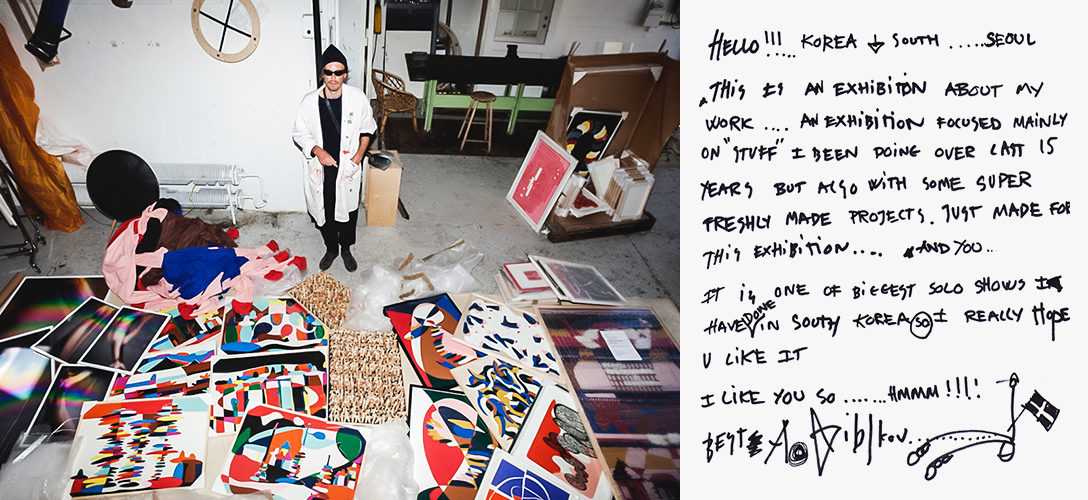 HELLO!!!..... KOREA SOUTH .....SEOUL
THIS IS AN EXHIBITION ABOUT MY
WORK .... AN EXHIBITION FOCUSED MAINLY
ON "STUFF" I BEEN DOING OVER LAST 15
YEARS BUT ALSO WITH SOME SUPER
FRESHLY MADE PROJECTS. JUST MADE FOR
THIS EXHIBITION.... AND YOU..
IT IS ONE OF BIGGEST SOLO SHOWS I
HAVE DONE IN SOUTH KOREA SO I REALLY HOPE
U LIKE IT
I LIKE YOU SO .......HMMM!!!!